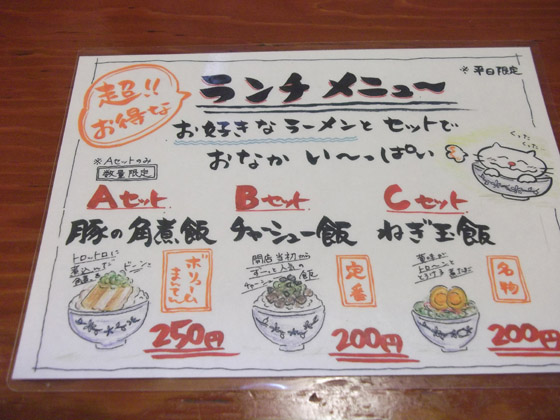 超!!
お得な
ランチメニュー
※平日限定
お好きなラーメンとセットで
おなかい〜っぱい
くったくった
※Aセットのみ
数量限定
Aセット
豚の角煮飯
トロットロに
煮込んだ
角煮
ドーンと
ボリューム
まんてん
250円
Bセット
チャーシュー飯
開店当初から
ずーっと人気の
チャーシュー飯
定番
200円
Cセット
ねぎ玉飯
黄味が
トロ〜ンと
名物
200円